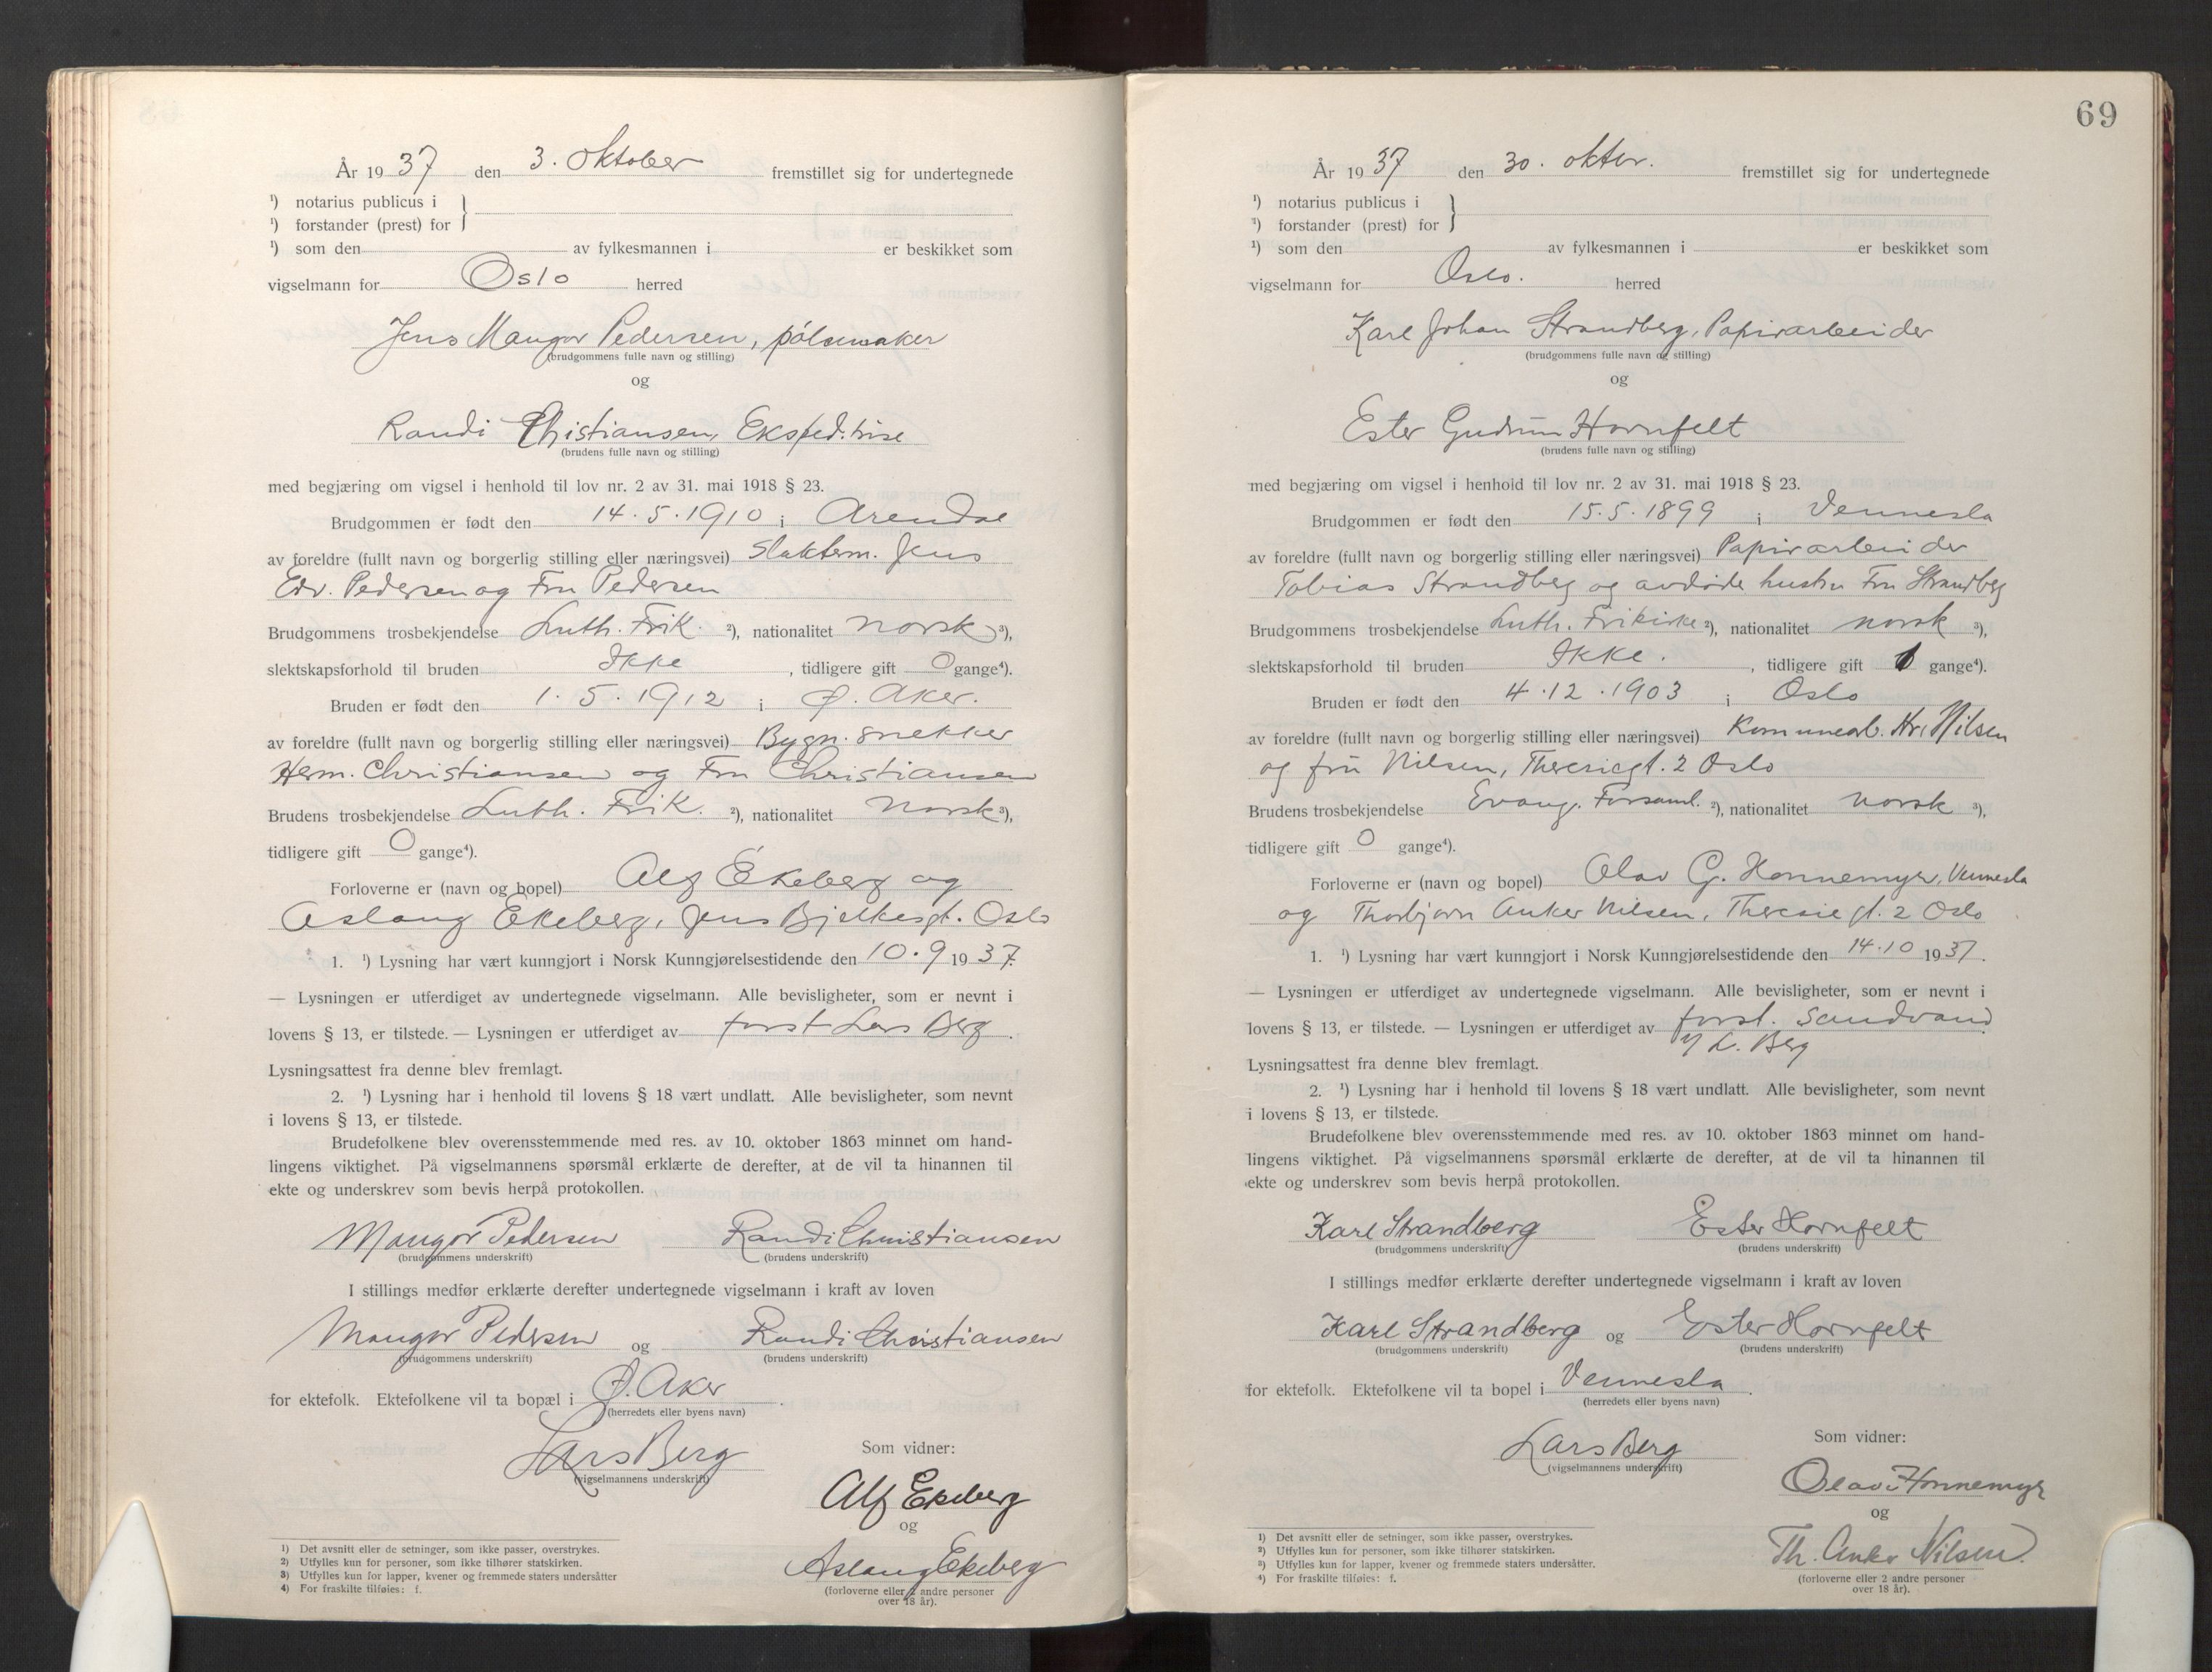 År 1937 den 3. oktober fremstillet sig for undertegnede
¹) notarius publicus i
¹) forstander (prest) for
¹) som den av fylkesmannen i er beskikket som
vigselmann for Oslo herred
Jens Mangor Pedersen, pølsemaker
(brudgommens fulle navn og stilling)
og
Randi Christiansen, Eksped.trise
(brudens fulle navn og stilling)
med begjæring om vigsel i henhold til lov nr. 2 av 31. mai 1918 § 23.
Brudgommen er født den 14.5.1910 i Arendal
av foreldre (fullt navn og borgerlig stilling eller næringsvei) Slakterm. Jens
Edv. Pedersen og Fru Pedersen
Brudgommens trosbekjendelse Luth. Frik. ²), nationalitet norsk ³),
slektskapsforhold til bruden Ikke, tidligere gift 0 gange⁴).
Bruden er født den 1.5.1912 i Ø. Aker.
av foreldre (fullt navn og borgerlig stilling eller næringsvei) Bygn. snekker
Herm. Christiansen og Fru Christiansen
Brudens trosbekjendelse Luth. Frik. ²), nationalitet Norsk ³),
tidligere gift 0 gange⁴).
Forloverne er (navn og bopel) Alf Ekeberg og
Aslaug Ekeberg, Jens Bjelkesgt. Oslo
1. ¹) Lysning har vært kunngjort i Norsk Kunngjørelsestidende den 10.9 1937.
— Lysningen er utferdiget av undertegnede vigselmann. Alle bevisligheter, som er nevnt i
lovens § 13, er tilstede. — Lysningen er utferdiget av forst Lars Berg.
Lysningsattest fra denne blev fremlagt.
2. ¹) Lysning har i henhold til lovens § 18 vært undlatt. Alle bevisligheter, som nevnt
i lovens § 13, er tilstede.
Brudefolkene blev overensstemmende med res. av 10. oktober 1863 minnet om hand-
lingens viktighet. På vigselmannens spørsmål erklærte de derefter, at de vil ta hinannen til
ekte og underskrev som bevis herpå protokollen.
Mangor Pedersen Randi Christiansen
(brudgommens underskrift) (brudens underskrift)
I stillings medfør erklærte derefter undertegnede vigselmann i kraft av loven
Mangor Pedersen og Randi Christiansen
(brudgommens underskrift) (brudens underskrift)
for ektefolk. Ektefolkene vil ta bopæl i Ø. Aker.
(herredets eller byens navn)
Lars Berg
(vigselmannens underskrift)
Som vidner:
Alf Ekeberg
og
Aslaug Ekeberg
(forloverne eller 2 andre personer
over 18 år).
1) Det avsnitt eller de setninger, som ikke passer, overstrykes.
2) Utfylles kun for personer, som ikke tilhører statskirken.
3) Utfylles kun for lapper, kvener og fremmede staters undersåtter
4) For fraskilte tilføies: f.
69
År 1937 den 30. oktbr. fremstillet sig for undertegnede
¹) notarius publicus i
¹) forstander (prest) for
¹) som den av fylkesmannen i er beskikket som
vigselmann for Oslo. herred
Karl Johan Strandberg, Papirarbeider
(brudgommens fulle navn og stilling)
og
Ester Gudrun Hornfelt
(brudens fulle navn og stilling)
med begjæring om vigsel i henhold til lov nr. 2 av 31. mai 1918 § 23.
Brudgommen er født den 15.5.1899 i Vennesla
av foreldre (fullt navn og borgerlig stilling eller næringsvei) Papirarbeider
Tobias Strandberg og avdøde hustru Fru Strandberg
Brudgommens trosbekjendelse Luth. Frikirke ²), nationalitet norsk ³),
slektskapsforhold til bruden Ikke., tidligere gift 1 gange⁴).
Bruden er født den 4.12.1903 i Oslo
av foreldre (fullt navn og borgerlig stilling eller næringsvei) Kommunearb. Hr. Nilsen
og fru Nilsen, Theresiegt. 2 Oslo
Brudens trosbekjendelse Evang. Forsaml. ²), nationalitet norsk ³),
tidligere gift 0 gange⁴).
Forloverne er (navn og bopel) Olav G. Honnemyr, Vennesla
og Thorbjørn Anker Nilsen, Theresie gt. 2 Oslo
1. ¹) Lysning har vært kunngjort i Norsk Kunngjørelsestidende den 14.10 1937.
— Lysningen er utferdiget av undertegnede vigselmann. Alle bevisligheter, som er nevnt i
lovens § 13, er tilstede. — Lysningen er utferdiget av forst. Sandvand
L. Berg
Lysningsattest fra denne blev fremlagt.
2. ¹) Lysning har i henhold til lovens § 18 vært undlatt. Alle bevisligheter, som nevnt
i lovens § 13, er tilstede.
Brudefolkene blev overensstemmende med res. av 10. oktober 1863 minnet om hand-
lingens viktighet. På vigselmannens spørsmål erklærte de derefter, at de vil ta hinannen til
ekte og underskrev som bevis herpå protokollen.
Karl Strandberg Ester Hornfelt
(brudgommens underskrift) (brudens underskrift)
I stillings medfør erklærte derefter undertegnede vigselmann i kraft av loven
Karl Strandberg og Ester Hornfelt
(brudgommens underskrift) (brudens underskrift)
for ektefolk. Ektefolkene vil ta bopel i Vennesla.
(herredets eller byens navn)
Lars Berg
(vigselmannens underskrift)
Som vidner:
Olav Honnemyr
og
Th. Anker Nilsen.
(forloverne eller 2 andre personer
over 18 år).
¹) Det avsnitt eller de setninger, som ikke passer, overstrykes.
²) Utfylles kun for personer, som ikke tilhører statskirken.
³) Utfylles kun for lapper, kvener og fremmede staters undersåtter.
⁴) For fraskilte tilføies: f.